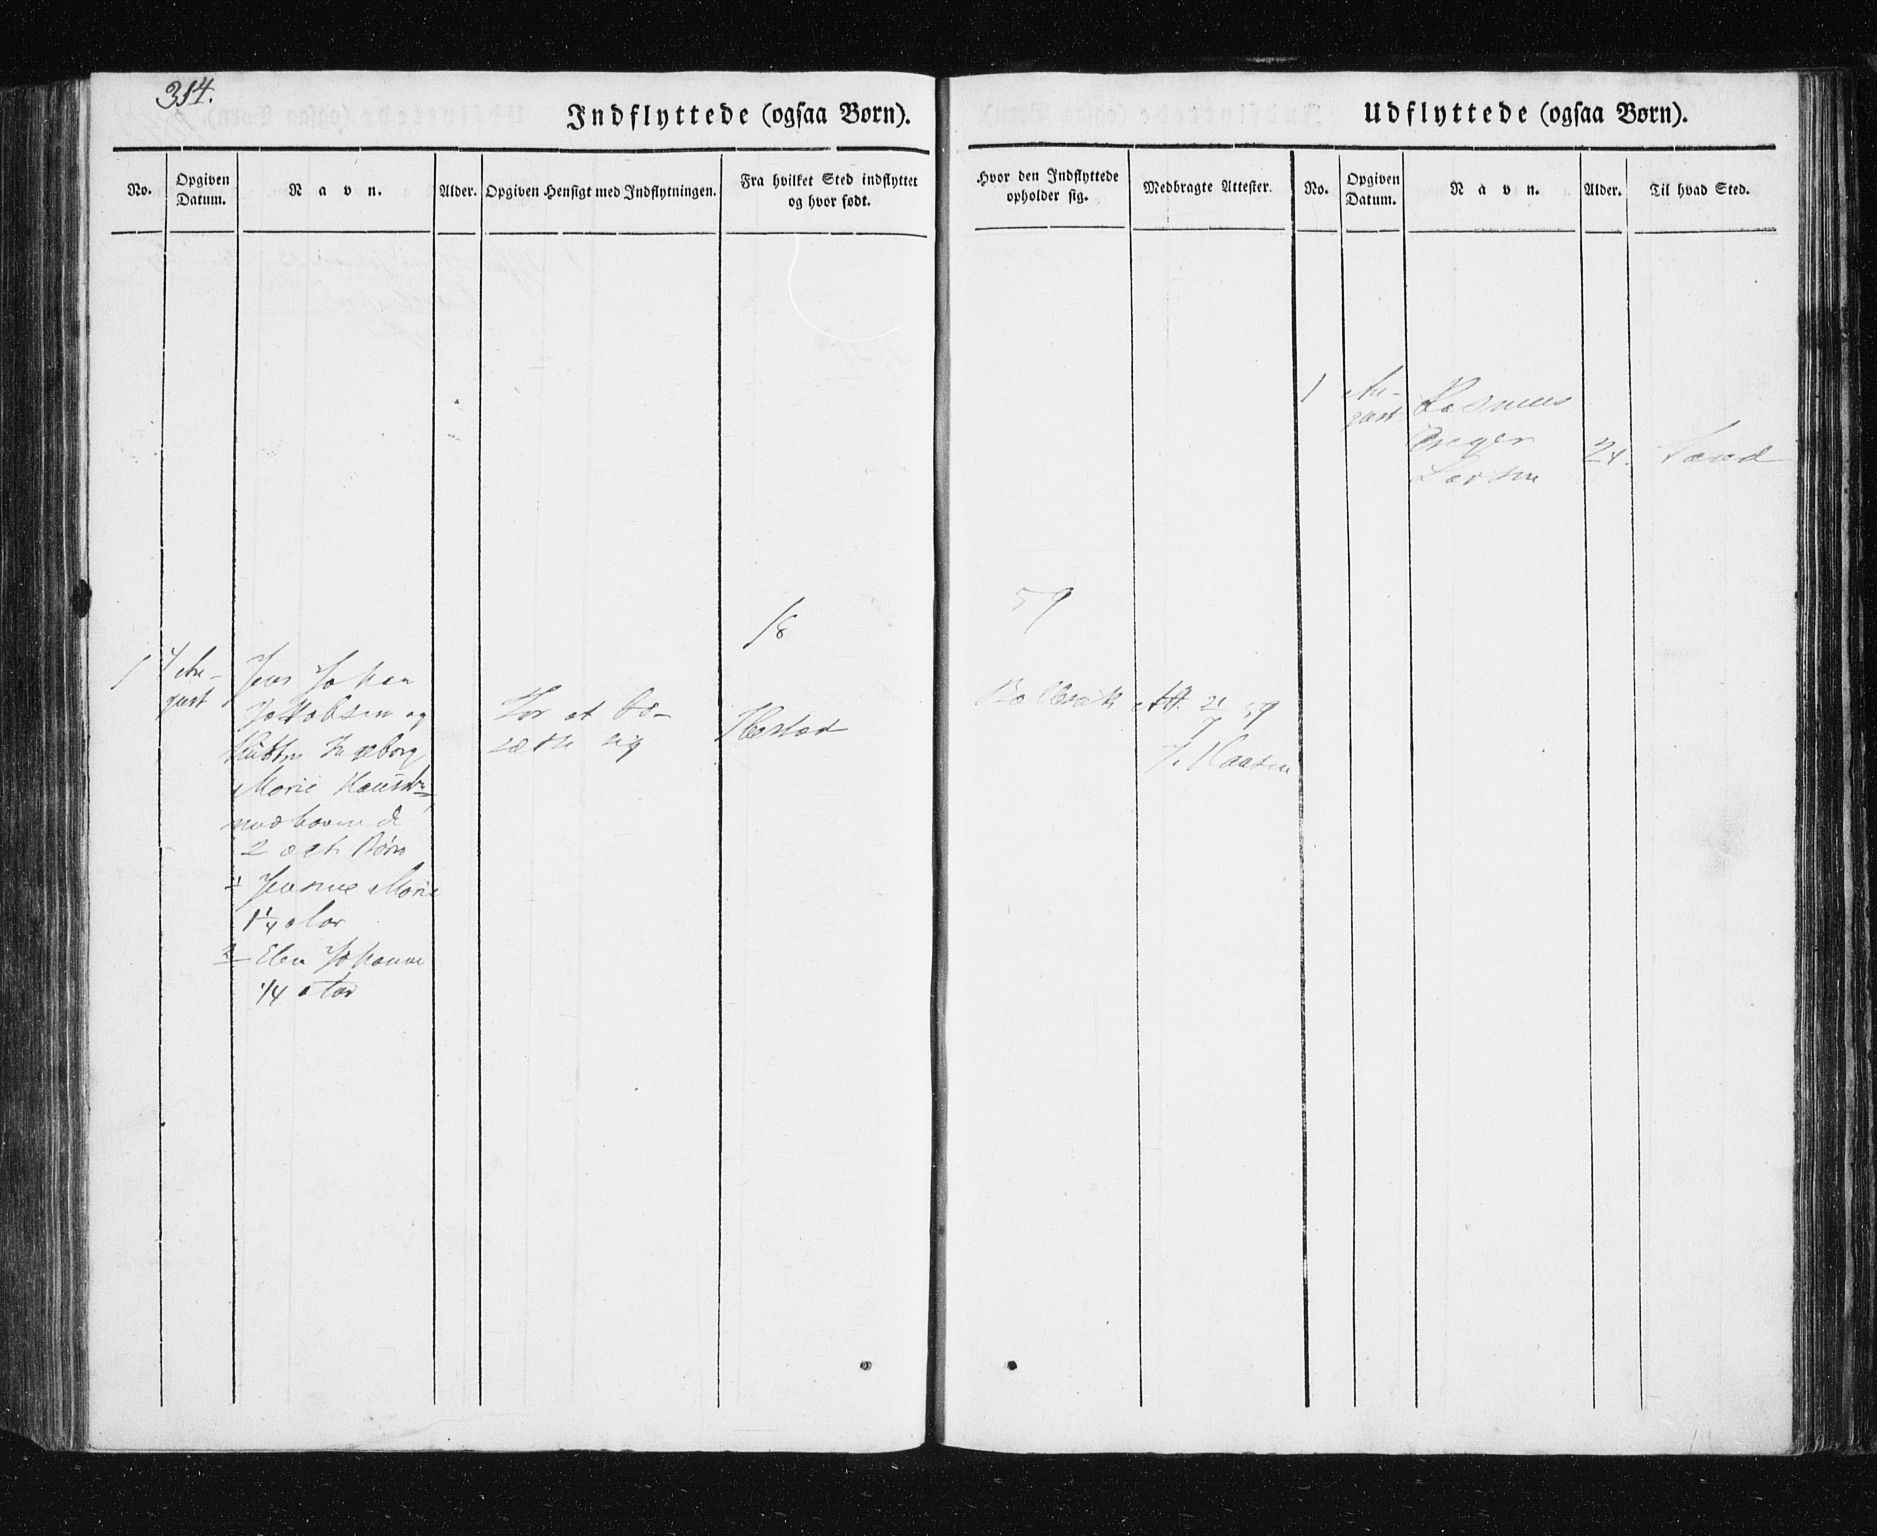 314.
Indflyttede (ogsaa Børn).
No.
Opgiven Datum.
Navn.
Alder.
Opgiven Hensigt med Indflytningen.
Fra hvilket Sted indflyttet og hvor født.
18
1
4 Au-
gust
Jens Johan
Jakobsen og
Ingeborg
Marie
medhavende
2 ægte Børn
1 Marie
1 1/4 Aar
2 Johanne
1/4 Aar
For at bo-
sætte sig
Udflyttede (ogsaa Børn).
Hvor den Indflyttede opholder sig.
Medbragte Attester.
No.
Opgiven Datum.
Navn.
Alder.
Til hvad Sted.
1
Au-
gust
Rasmus
Larsen
24.
Sand
59
Att. 21/7 59